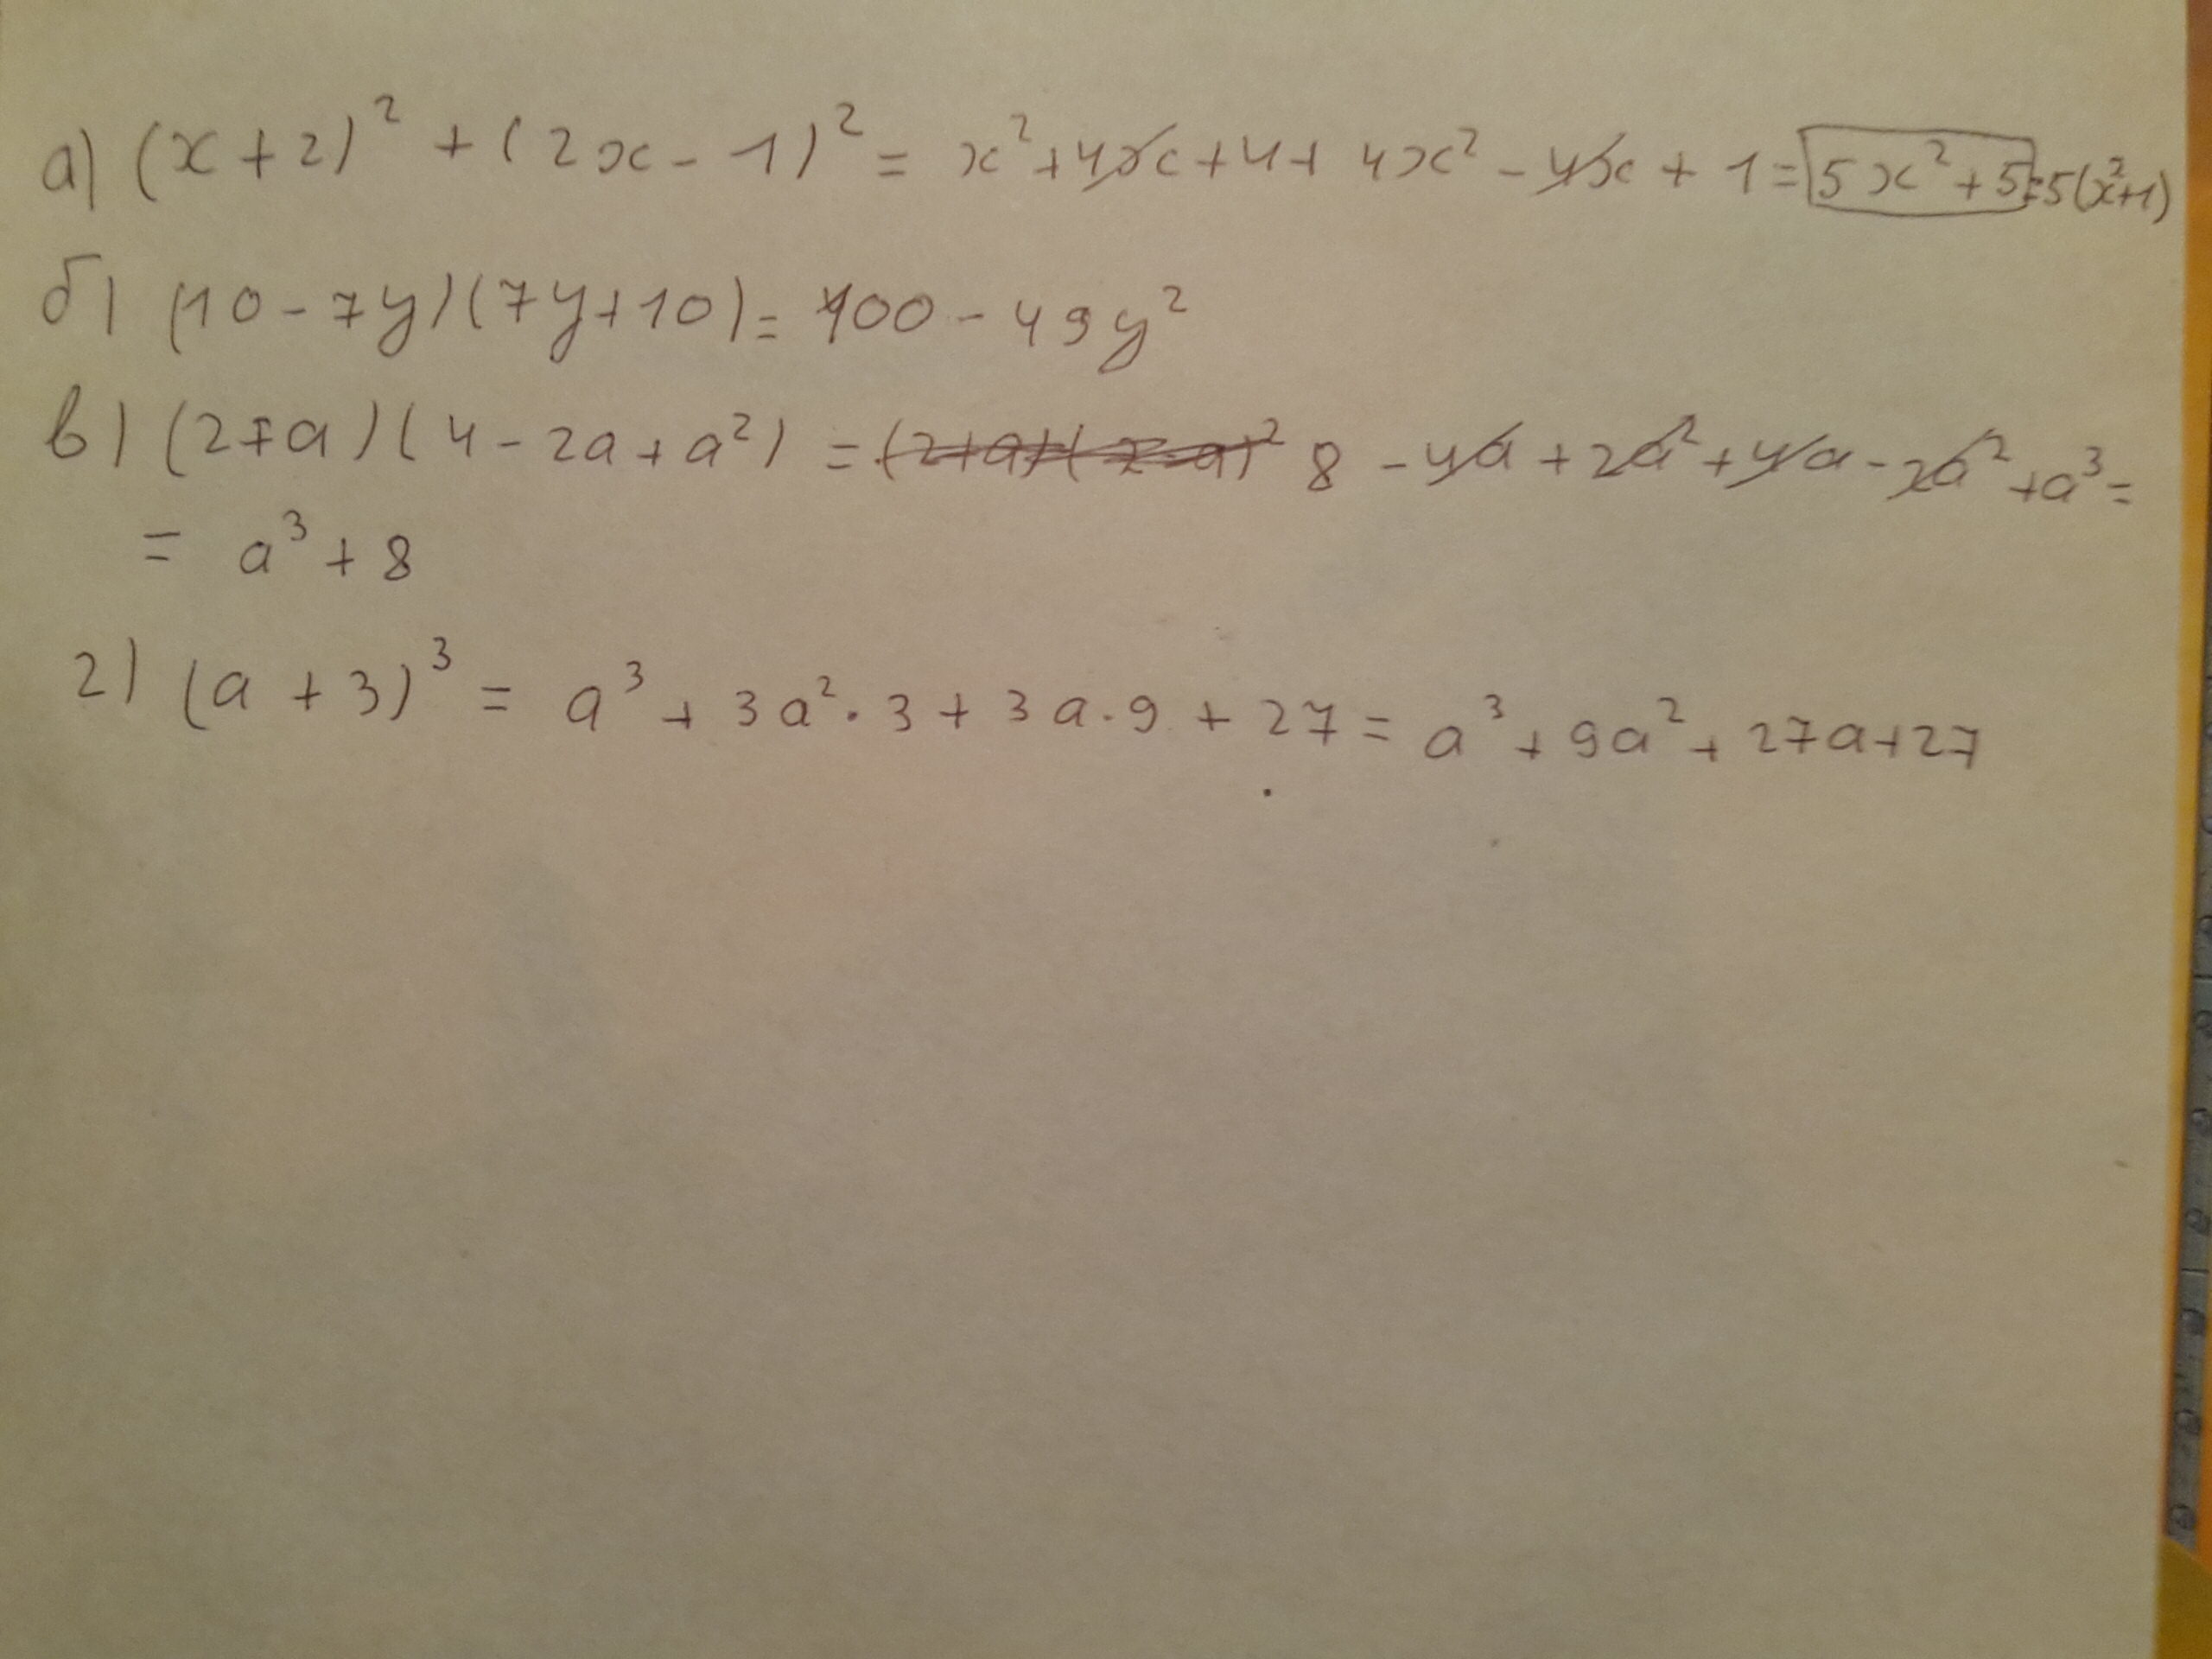 а) (x+2)² + (2x - 1)² = x² + 4x + 4 + 4x² - 4x + 1 = 5x² + 5 = 5(x²+1)
б) (10 - 7y)(7y+10) = 100 - 49y²
в) (2+a)(4 - 2a + a²) = (2+a)(2-a)² 8 - 4a + 2a² + 4a - 2a² + a³ =
= a³ + 8
г) (a + 3)³ = a³ + 3a²·3 + 3a·9 + 27 = a³ + 9a² + 27a + 27